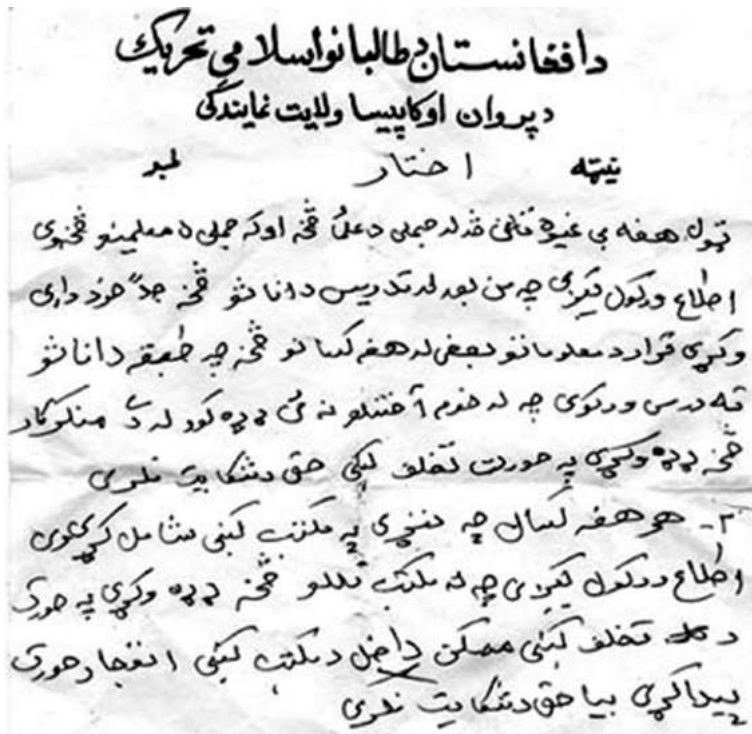 د افغانستان د طالبانو اسلامي تحریک
د پروان او کاپیسا ولایت نمایندگی
نیټه اخطار لمبر
ټول هغه بی غیره له جملی د علی څخه او که جملی د معلمینو څخه وی
اطلاع ورکول کیږی چه من بعد له تدریس د اناثو څخه جداً خود داری
وکړی قرار د معلوماتو بعضی له هغه کسانو څخه چه طبقه د اناثو
ته درس ورکوی چه له خدمه کور له دی منکر کار
څخه ډډه وکړی په صورت تخلف کښی حق د شکایت نلری
۲- هر هغه کسان چه په مکتب کښی شامل کړی وی
اطلاع ورکول کیږی چه له مکتب تللو څخه ډډه وکړی په صورت
د تخلف کښی ممکن داخل د مکتب کښی انفجار صورت
پیدا کړی بیا حق د شکایت نلری